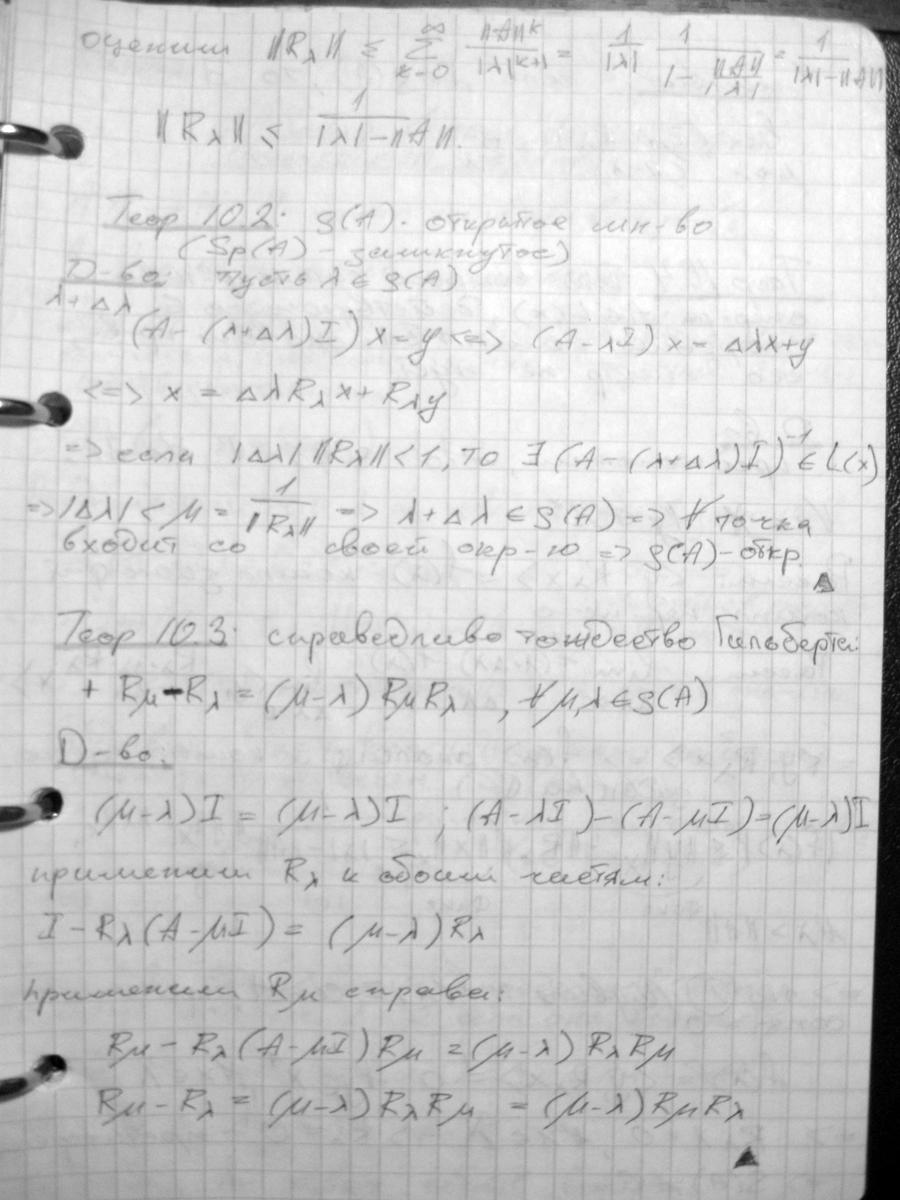 оценим ||Rλ|| ≤ ∑_{k=0}^{∞} ||A||^k / |λ|^{k+1} = 1/|λ| · 1/(1 - ||A||/|λ|) = 1/(|λ| - ||A||)
||Rλ|| ≤ 1/(|λ| - ||A||).
Теор 10.2: ρ(A) - открытое мн-во
(Sp(A) - замкнутое)
D-во: пусть λ ∈ ρ(A)
λ+Δλ
(A - (λ+Δλ)I) x = y <=> (A-λI) x = Δλx+y
<=> x = ΔλRλx + Rλy
=> если |Δλ| ||Rλ|| < 1, то ∃ (A - (λ+Δλ)I)^{-1} ∈ L(x)
=> |Δλ| < μ = 1/||Rλ|| => λ+Δλ ∈ ρ(A) => ∀ точка
входит со своей окр-ю => ρ(A) - откр.
▲
Теор 10.3: справедливо тождество Гильберта:
+ Rμ - Rλ = (μ-λ) RμRλ , ∀μ,λ ∈ ρ(A)
D-во:
(μ-λ)I = (μ-λ)I ; (A-λI) - (A-μI) = (μ-λ)I
применим Rλ к обоим частям:
I - Rλ(A-μI) = (μ-λ)Rλ
применим Rμ справа:
Rμ - Rλ(A-μI)Rμ = (μ-λ) RλRμ
Rμ - Rλ = (μ-λ)RλRμ = (μ-λ)RμRλ
▲